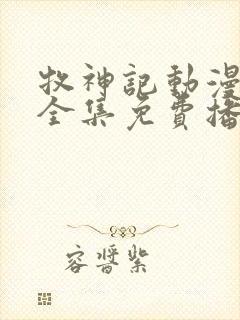 牧神記動漫
全集免費播
容醬紫